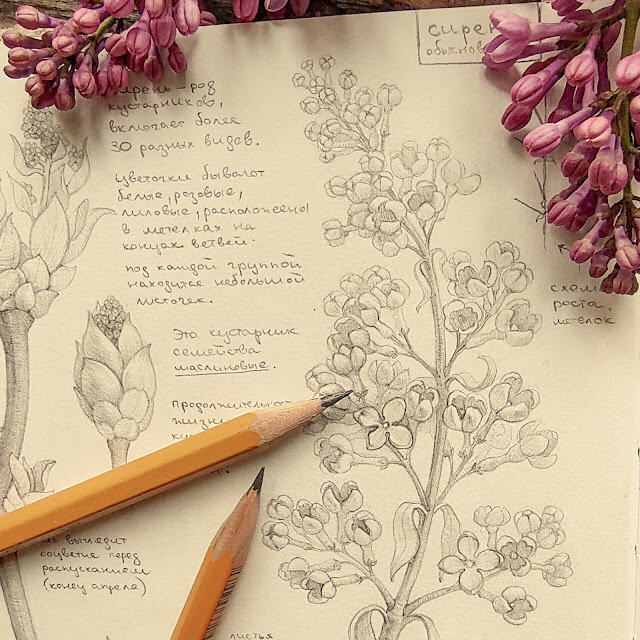 сирень – род
кустарников,
включает более
30 разных видов.
цветочки бывают
белые, розовые,
лиловые, расположены
в метелках на
концах ветвей.
под каждой группой
находится небольшой
листочек.
Это кустарник
семейства
маслиновые.
жизни
выглядит
соцветие перед
распусканием
(конец апреля)
листья
схема
роста
метелок